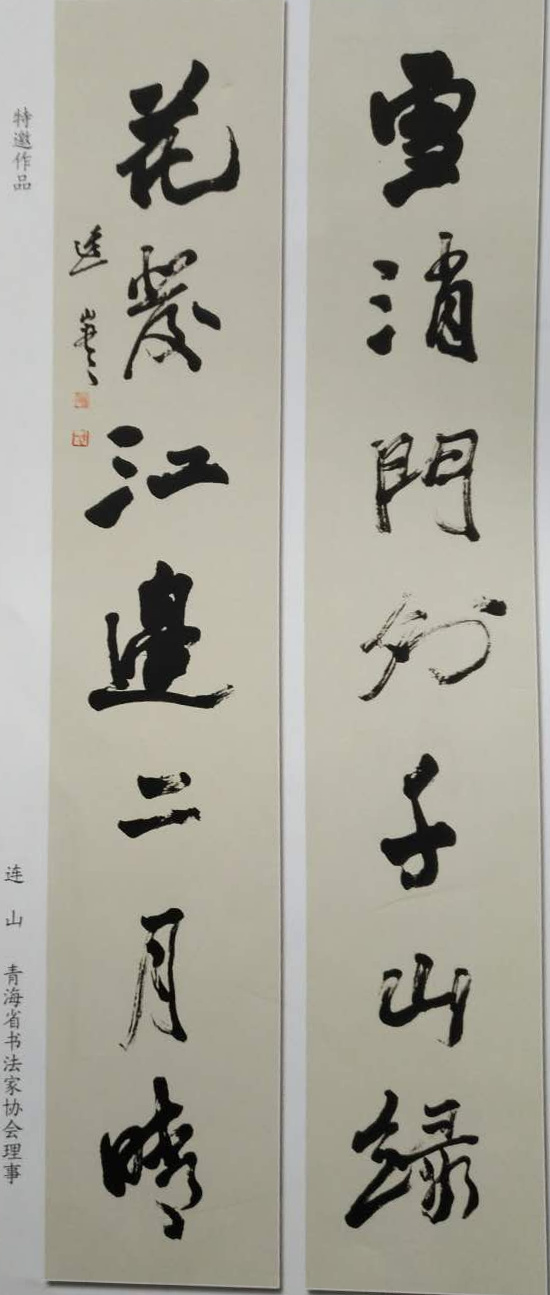 雪消門外千山綠
花發江邊二月晴
特邀作品
连山 青海省书法家协会理事